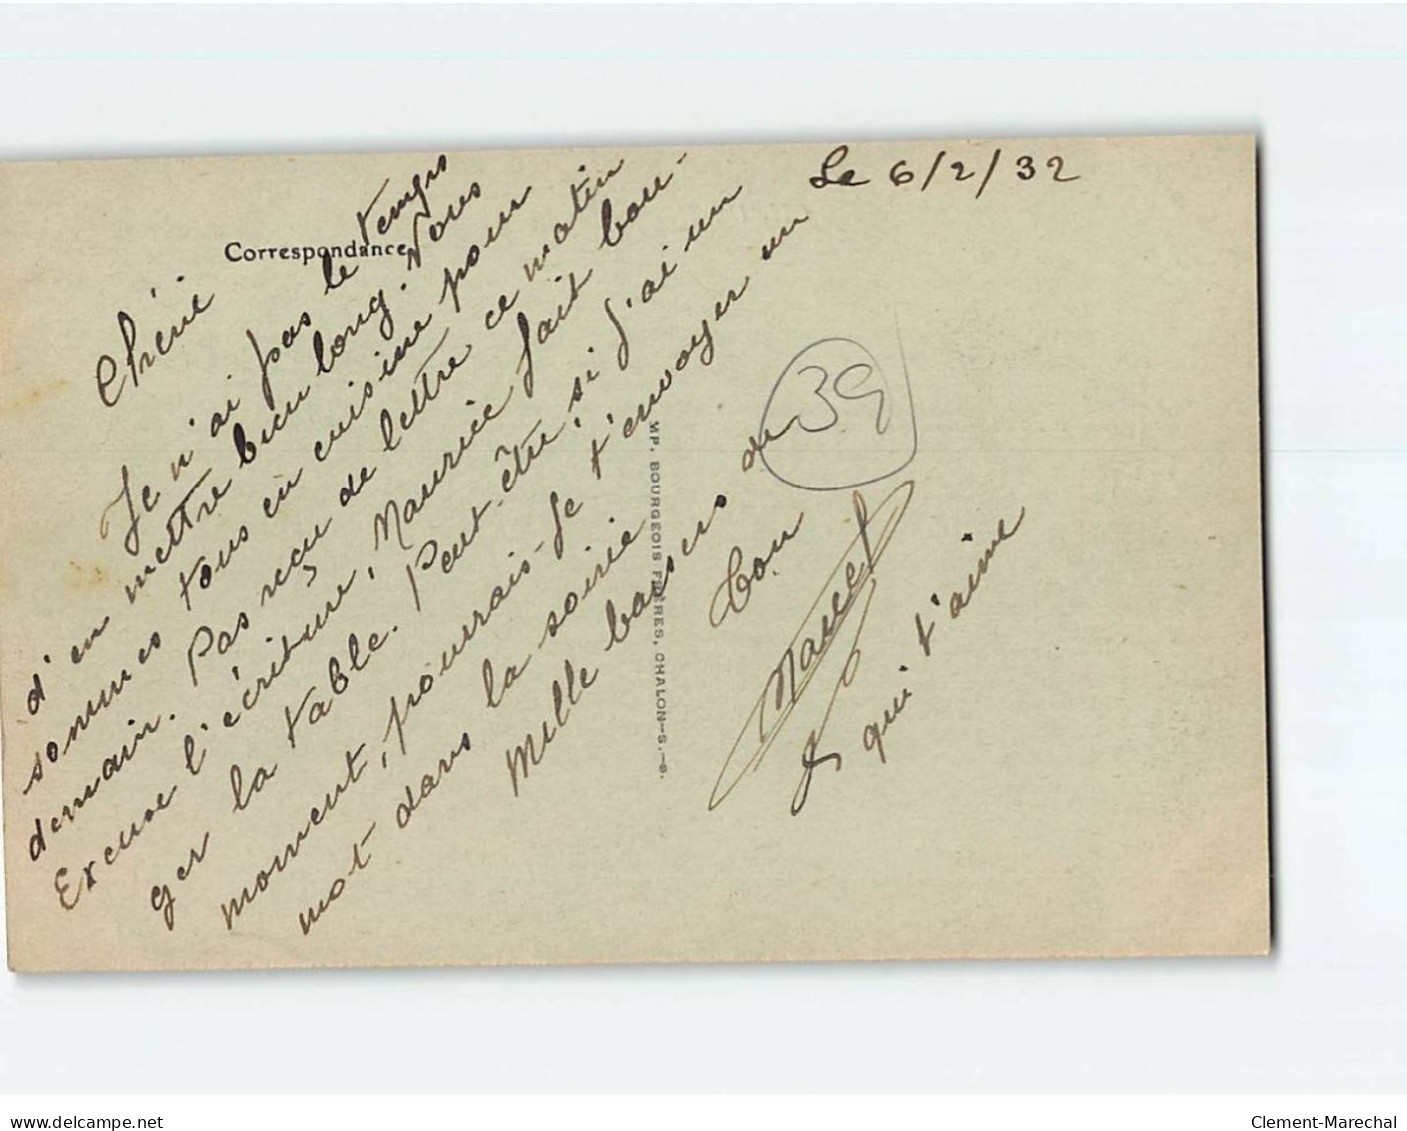 Le 6/2/32
Correspondance
Chérie
Je n'ai pas le temps
d'en mettre bien long. Nous
sommes tous en cuisine pour
demain. Pas reçu de lettre ce matin
Excuse l'écriture, Maurice fait bou-
ger la table. Peut-être, si j'ai un
moment, pourrais-je t'envoyer un
mot dans la soirée
Mille baisers de
ton
Marcel
qui t'aime
39
IMP. BOURGEOIS FRÈRES, CHALON-S.-S.
www.delcampe.net
Clement-Marechal